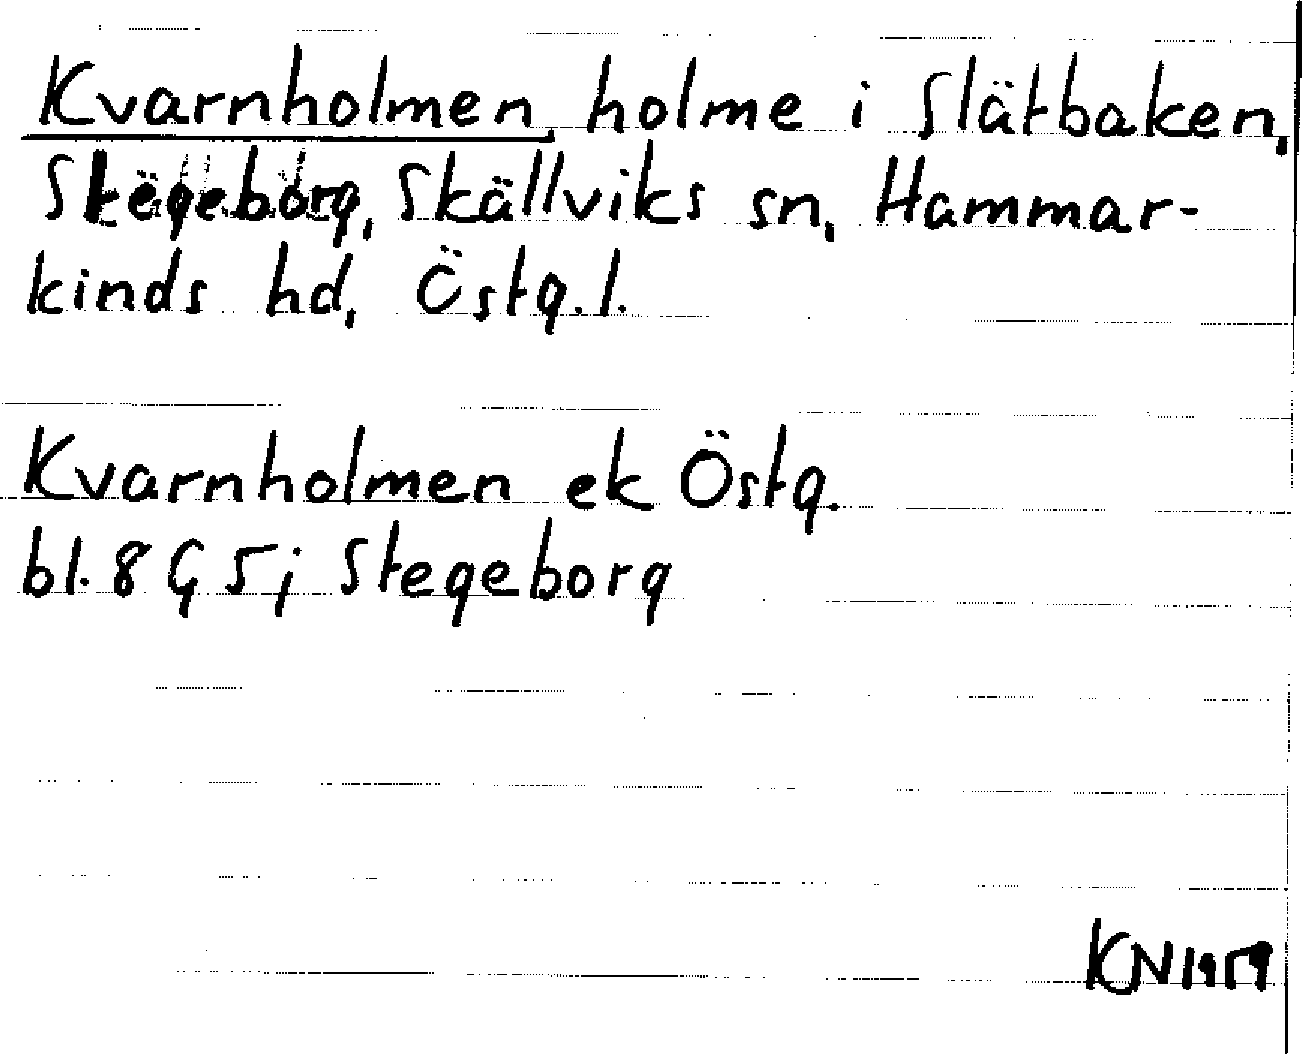 Kvarnholmen, holme i Slätbaken,
Stegeborg, Skällviks sn, Hammar-
kinds hd, Östg. l.
Kvarnholmen ek Östg.
bl. 8 G 5 j Stegeborg
KN 1959